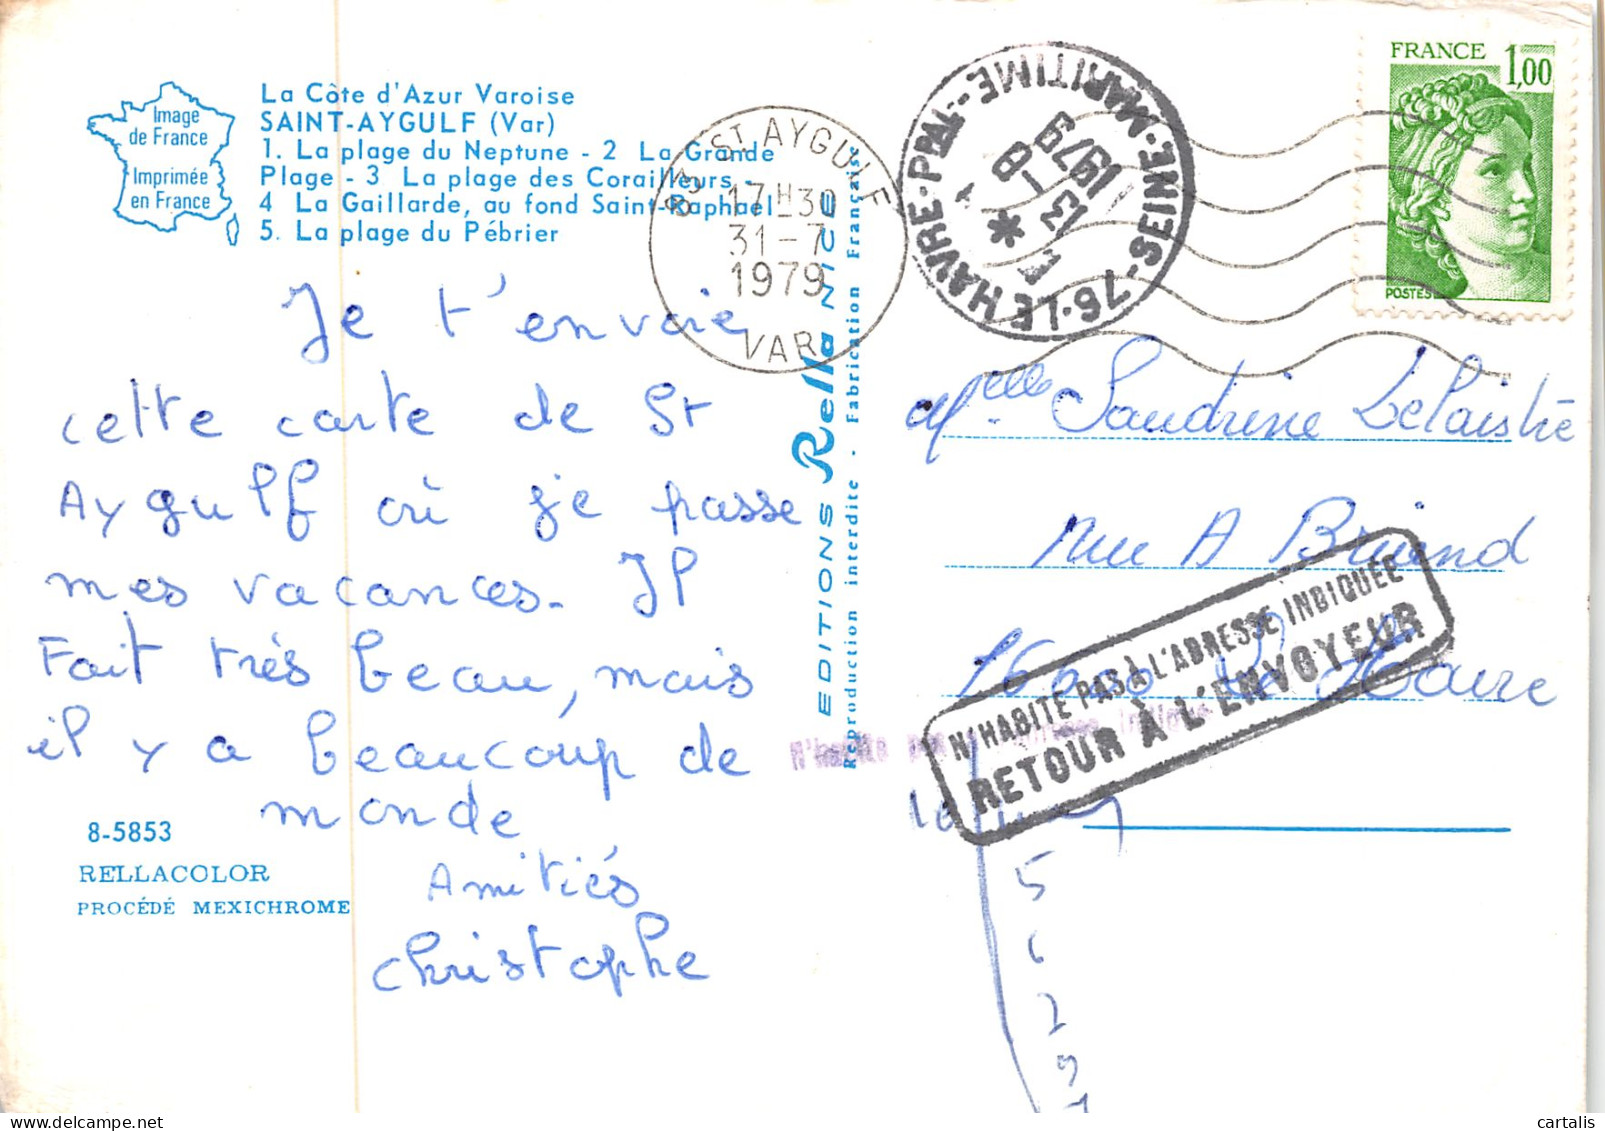 Image
de France
Imprimée
en France
La Côte d'Azur Varoise
SAINT-AYGULF (Var)
1. La plage du Neptune - 2 La Grande
Plage - 3 La plage des Corailleurs -
4 La Gaillarde, au fond Saint-Raphaël
5. La plage du Pébrier
83 ST AYGULF
17 H 30
31-7
1979
VAR
76-LE HAVRE-PPAL-SEINE-MARITIME
13 -8
1979
FRANCE 1,00
POSTES
Je t'envoie
cette carte de St
Aygulf où je passe
mes vacances. Il
Fait très beau, mais
il y a beaucoup de
monde
Amitiés
Christophe
8-5853
RELLACOLOR
PROCÉDÉ MEXICHROME
EDITIONS Rella NICE
Reproduction interdite - Fabrication Française
Melle Sandrine Delaistre
rue A Briand
Le Havre
N'HABITE PAS À L'ADRESSE INDIQUÉE
RETOUR À L'ENVOYEUR
N'habite pas
5
6
2
9
cartalis